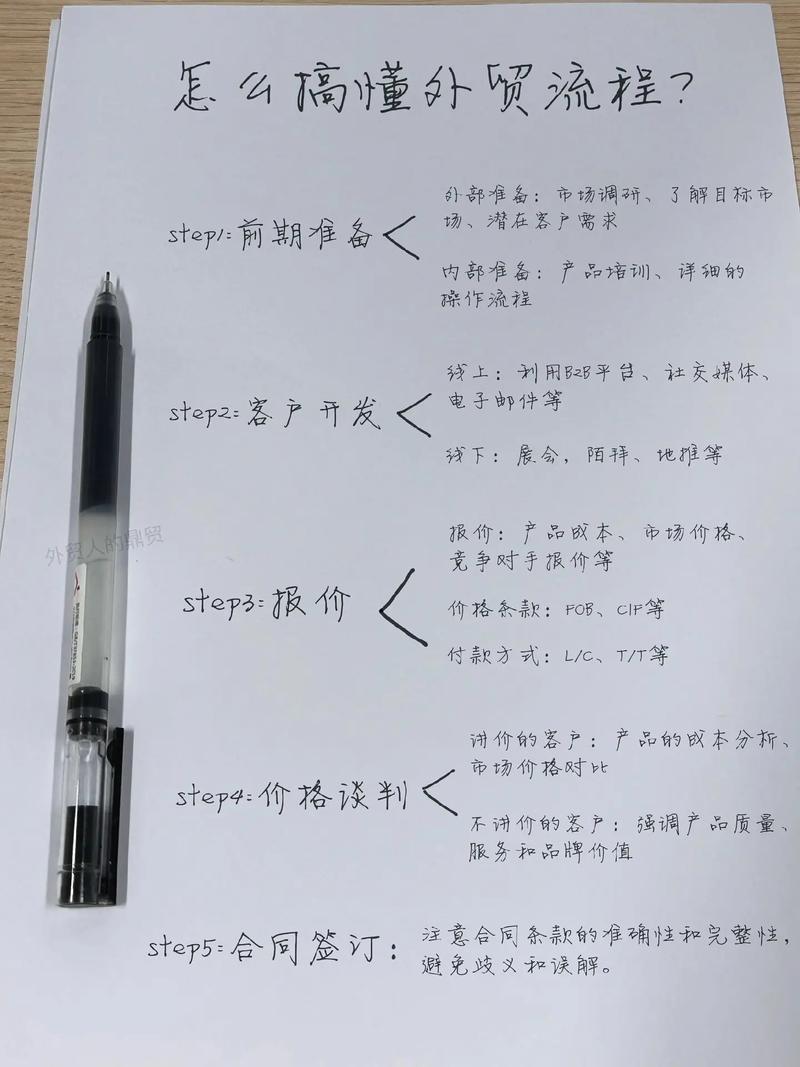 怎么搞懂外贸流程?
step1:前期准备
外部准备:市场调研、了解目标市
场、潜在客户需求
内部准备:产品培训、详细的
操作流程
step2:客户开发
线上:利用B2B平台、社交媒体、
电子邮件等
线下:展会,陌拜、地推等
外贸人的鼎贸
step3:报价
报价:产品成本、市场价格、
竞争对手报价等
价格条款:FOB、CIF等
付款方式:L/C、T/T等
step4:价格谈判
讲价的客户:产品的成本分析、
市场价格对比
不讲价的客户:强调产品质量、
服务和品牌价值
step5:合同签订:
注意合同条款的准确性和完整性,
避免歧义和误解。